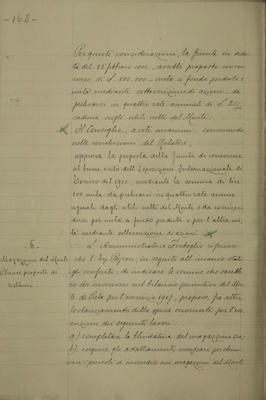 - 162 -
Per queste considerazioni, la Giunta in sedu-
ta del 28 febbraio 1907, avrebbe proposto un con-
corso di L. 100.000 - metà a fondo perduto e
metà mediante sottoscrizione di azioni - da
prelevarsi in quattro rate annuali di L. 25/m
caduna sugli utili netti del Monte.
Il Consiglio, a voti unanimi, convenendo
nelle conclusioni del Relatore,
approva la proposta della Giunta di concorrere
al buon esito dell'Esposizione Internazionale di
Torino del 1911, mediante la somma di lire
100 mila, da prelevarsi in quattro rate annue
uguali dagli utili netti del Monte e da corrispon-
dersi per metà a fondo perduto e per l'altra me-
tà mediante sottoscrizione di azioni.
- 6 -
Magazzeni del Monte
L'Amministratore riferisce
che l'Ing.
gli conferito, di indicare le somme che sarebbe-
ro da inscriversi nel bilancio preventivo del Mon-
te di Pietà per l'esercizio 1907, propose, fra altri,
lo stanziamento della spesa occorrente per l'ese-
cuzione dei seguenti lavori:
a) completare la blindatura del magazzino ora,
b) eseguire gli adattamenti necessari per dimi-
nuire i pericoli d'incendio nei magazzeni del Monte